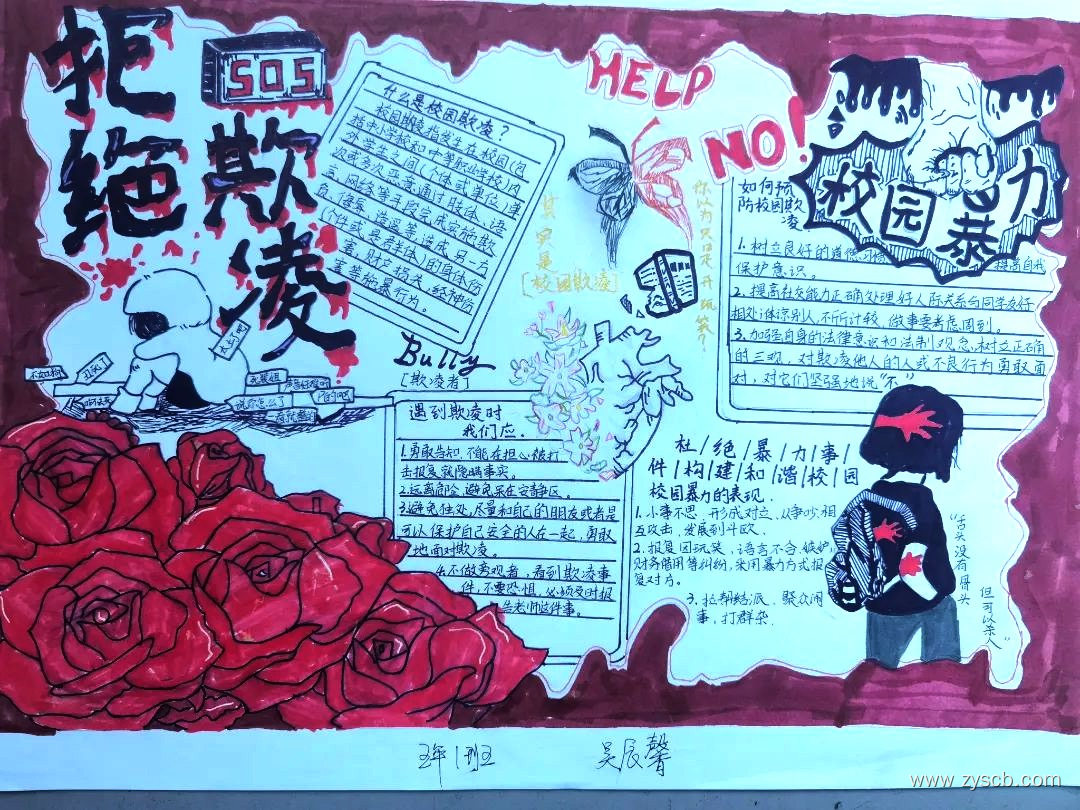 拒绝
欺凌
SOS
什么是校园欺凌?
校园欺凌指发生在校园(包
括中小学校和中等职业学校)内
外、学生之间(个体或单位)单
次或多次恶意通过肢体、语
言、网络等手段完成实施欺
负、侮辱、造成另一方
(个体或是群体)的身体伤
害、财产损失、经神伤
害等施暴行为。
HELP
NO!
其实是
[校园欺凌]
你以为只是开玩笑?
校园暴力
如何预
防校园欺
凌
1.树立良好的道德 提高自我
保护意识。
2.提高社交能力正确处理好人际关系与同学友好
相处,体谅别人,不斤斤计较,做事要考虑周到。
3.加强自身的法律意识和法制观念,树立正确
的三观,对欺凌他人的人或不良行为勇敢面
对,对它们坚强地说“不”
Bully
[欺凌者]
遇到欺凌时
我们应.
1.勇敢告知,不能在担心被打
击报复就隐瞒事实。
2.远离危险,避免呆在安静区。
3.避免独处,尽量和自己的朋友或者是
可以保护自己安全的人在一起,勇敢
地面对欺凌。
么不做旁观者,看到欺凌事
件,不要恐惧,必须及时报
告老师这件事。
杜/绝/暴/力/事/
件/构/建/和/谐/校/园
校园暴力的表现.
1.小事不思、形成对立、从争吵、相
互攻击、发展到斗欧.
2.报复因玩笑、语言不合、嫉妒、
财务借用等纠纷,采用暴力方式报
复对方。
3.拉帮结派、聚众闹
事,打群架.
“舌头没有骨头
但可以杀人”
五年1班
吴辰馨
www.zyscb.com